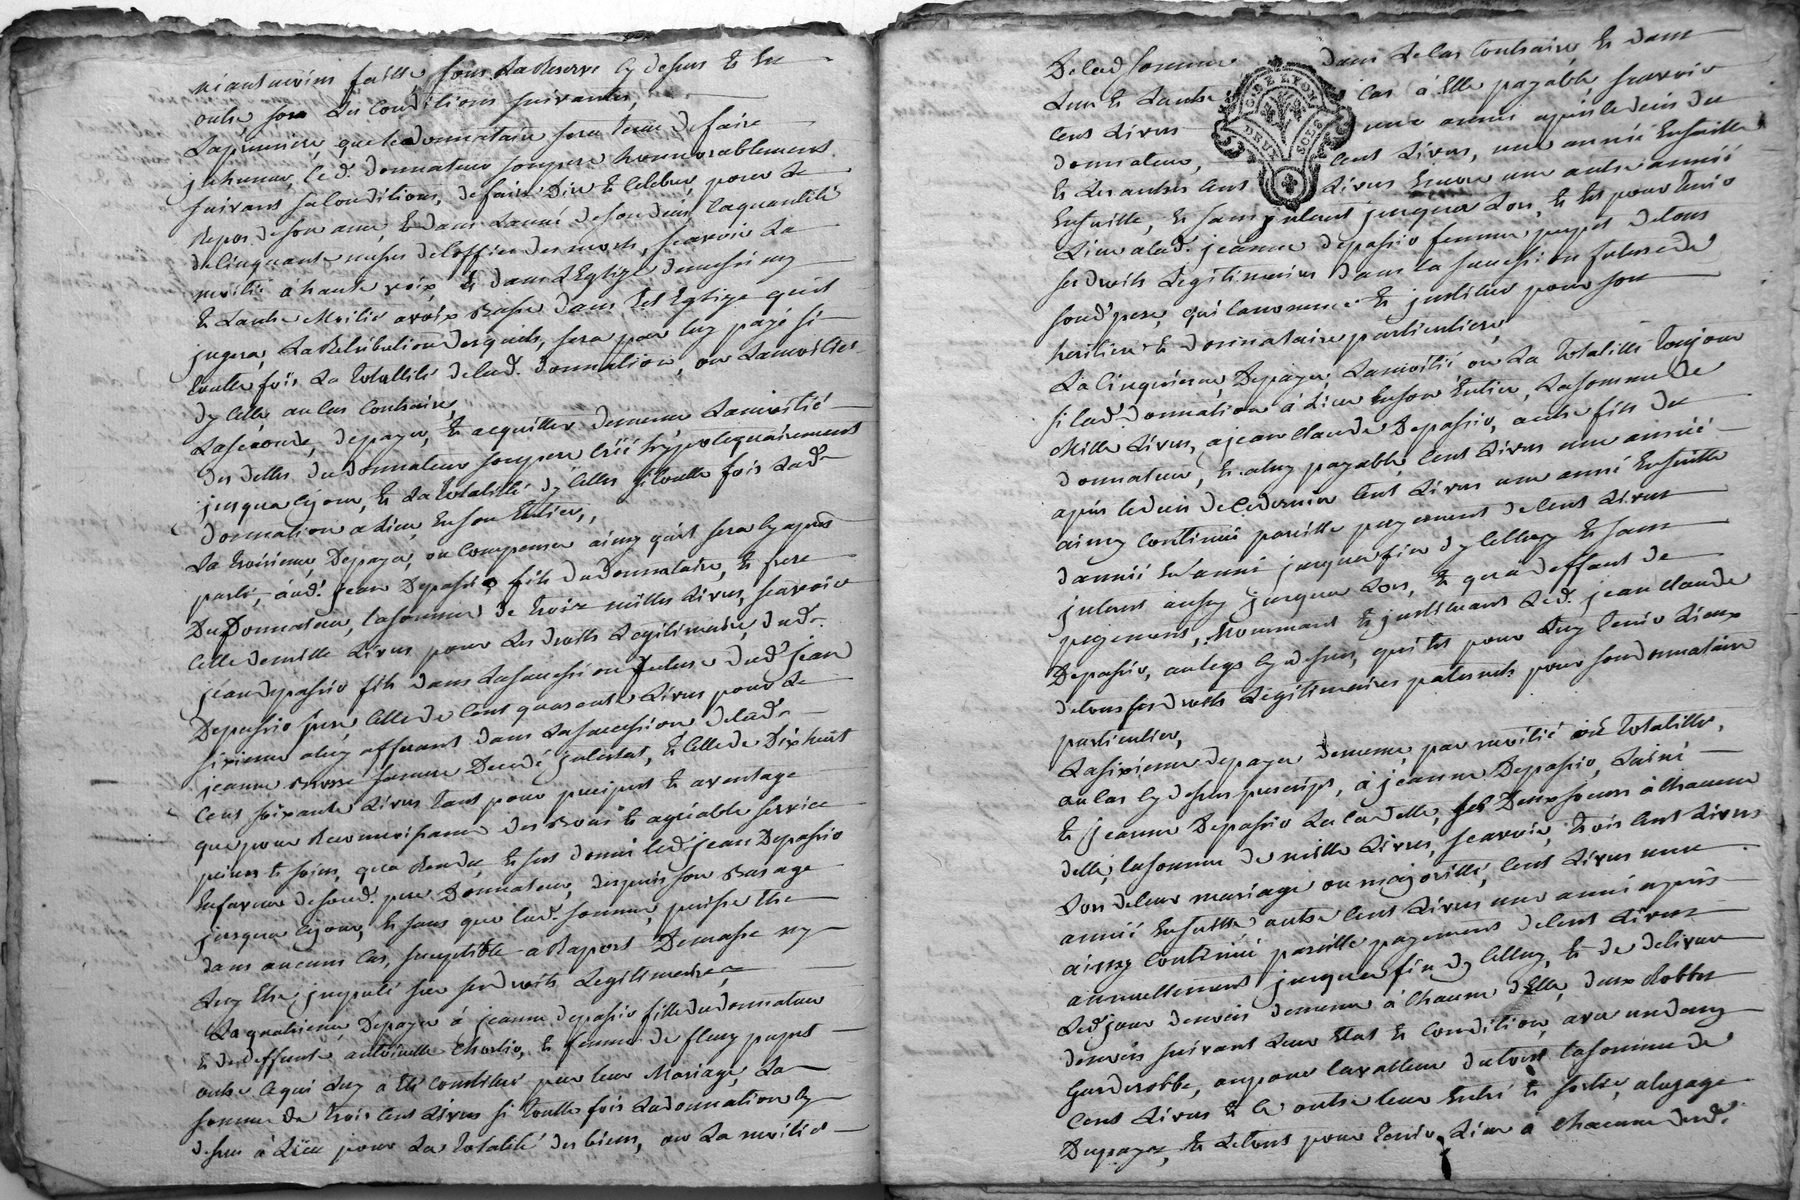 neantmoins faitte sous la Reserve cy dessus et en
outre sous les conditions suivantes,
La premiere, que le donnataire sera tenu de faire
inhumer, led. donnateur son pere honnorablement
suivant sa condition, de faire dire et celebrer, pour le
Repos de son ame, et dans l'année de son deces, la quantité
de cinquante messes de l'office des morts, scavoir la
moitié a haute voix, et dans l'Eglise
et l'autre Moitié a voix Basse dans tel Eglise quil
jugera, la Retribution desquels, sera par luy payé si
toutte fois la totallité de lad. donnation, ou la moitié
d'ycelle au cas contraire,
La seconde, de payer, et acquitter de meme la moitié
des dettes du donnateur son pere créé hypotequairement
jusqua ce jour, et la totallité d'ycelles si toutte fois lad.
donnation a lieu en son Entier,
La troisieme, De payer, ou compenser ainsy quil sera cy apres
parlé, aud. jean Depassio, fils du donnataire, et frere
Du Donnateur, la somme de trois milles livres, scavoir
celle de mille livres pour les droits Legitimaire, dud.
jean depassio fils dans la succession future dud. jean
Depassio pere, celle de cent quarante livres pour le
sixieme a luy afferant dans la succession de lad.
jeanne femme Decedé intestat, et celle de Dixhuit
Cent soixante livres tant pour preciput et aventage
que pour Reconnoissance des Bons et agreable service
peines et soins, qua Rendu, et sus donné led. jean Depassio
En faveur de sond. pere Donnateur, despuis son Bas age
jusqua ce jour, et sans que lad. somme, puisse etre
dans aucuns cas, suseptible a Raport De masse ny
luy etre imputé sur ses droits Legitimaire,
La quatrieme, De payer á jeanne depassio fille du donnateur
et de deffunte antoinette et femme de fleury
outre ce qui luy a eté constitué par leur Mariage, La
somme de trois cent livres si toutte fois la donnation cy
dessus á Lieu pour La totalité des biens, ou La moitié
De lad. somme dans le cas contraire et dans
Lun et lautre cas á Elle payable scavoir
cent livres une année apres le deces du
donnateur, cent livres, une année Ensuitte
et les autres cent livres Encore une autre année
Ensuitte, et sans interet jusqua lors, et tes pour tenir
Lieu a lad. jeanne depassio femme de tous
ses droits Legitimaires dans la succession future de
sond. pere, qui la nomme et institue pour son
heritiere et donnataire particuliere,
La cinquieme, De payer, la moitié ou La totalitté toujour
si lad. donnation á Lieu En son Entier, la somme de
Mille livres, a jean claude Depassio, autre fils du
donnateur, et a luy payable, cent livres une année
apres le deces de ce dernier cent livres une année Ensuitte
ainsy continué pareille payement de cent livres
d'année en année jusqua fin dycelluy et sans
interet aussy jusqua lors, et qua deffaut de
payement, Nommant et instituant led. jean claude
Depassio, au legs cy dessus, qui tes pour luy tenir Lieux
de tous ses droits Legitimaires paternels pour son donnataire
particulier,
La sixieme de payer de meme, par moitié ou totalitté,
au cas cy dessus prescript, á jeanne Depassio, Lainé
et jeanne Depassio La cadette, ses Deux soeurs á chacune
delle, la somme de mille livres, scavoir, trois cent livres
Lors de leur mariage ou majoritté, cent livres une
année Ensuitte autre cent livres une année apres
ainsy continué pareille payement de cent livres
annuellement jusqua fin dycelluy, et de delivrer
Led. jour de noces de meme á chacune d'Elle, deux Robbes
de noces suivant leur Etat et condition, avec
Garderobbe, la valleur du tout la somme de
Cent livres et ce outre leur Entré et sortie, a lusage
Du payer, et letout pour tenir Lieu á chacune dud.
G. DE LYON
DEUX SOLS